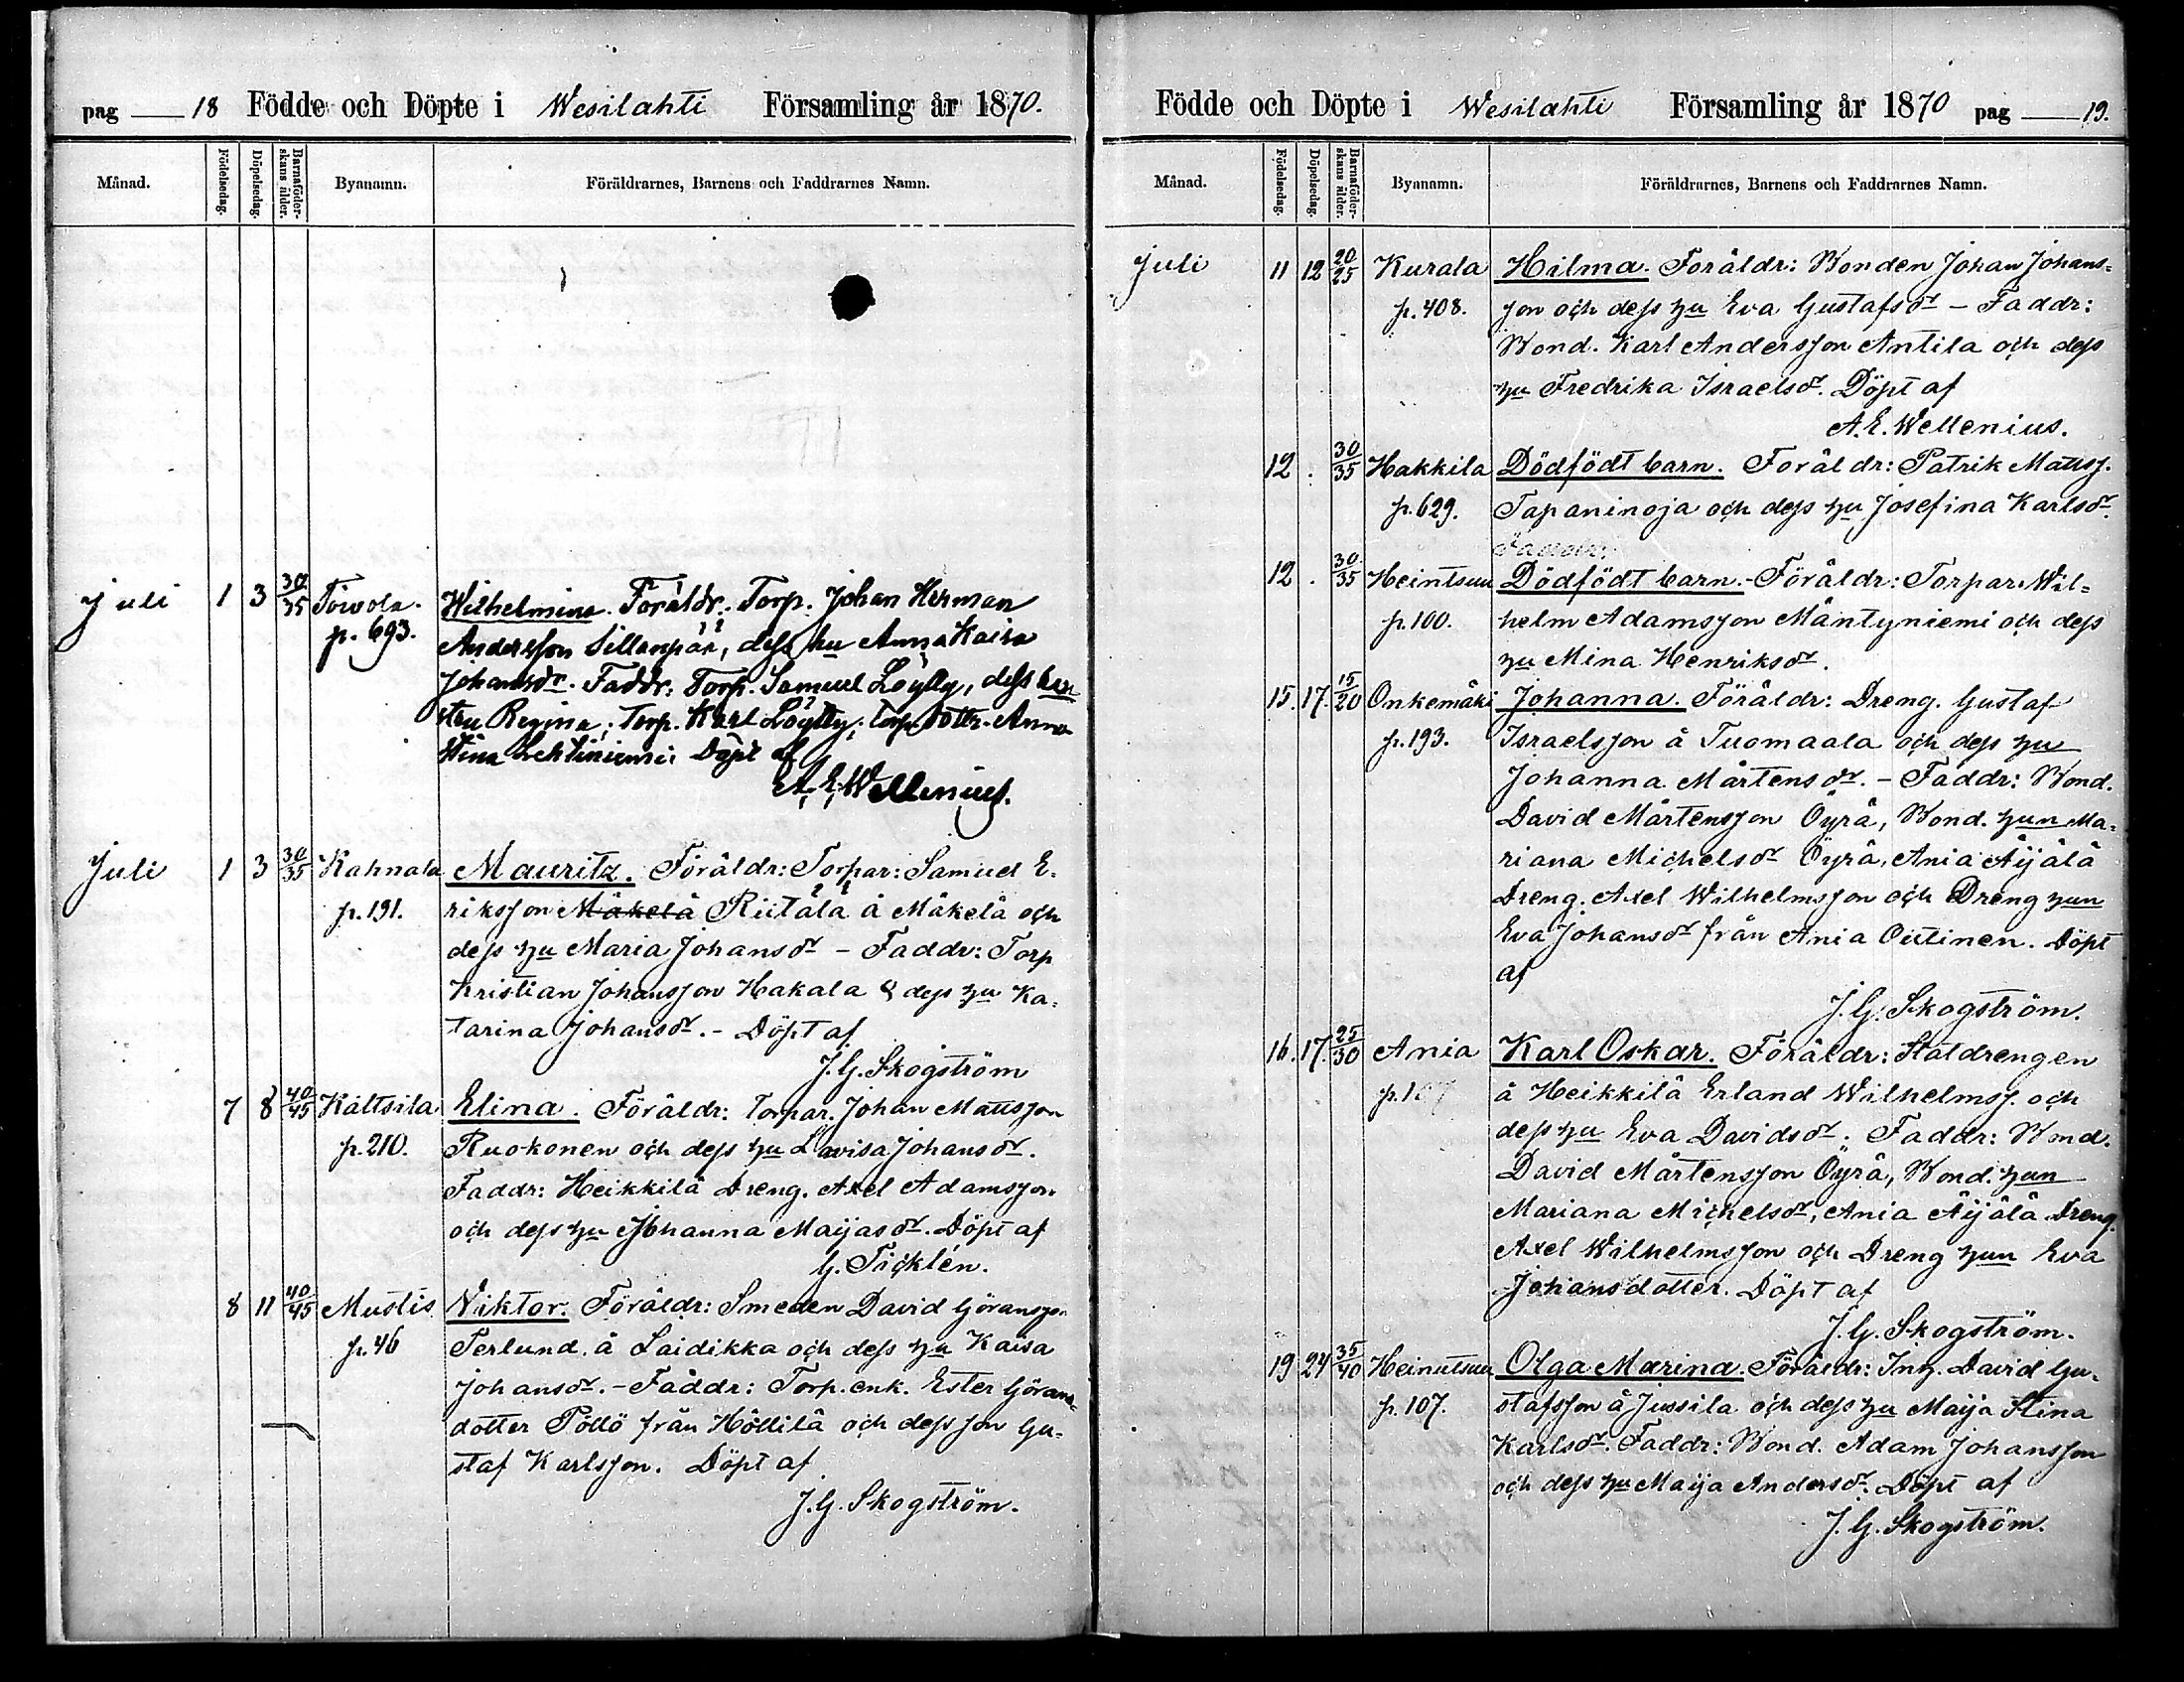 pag 18 Födde och Döpte i Wesilahti Församling år 1870.
Månad. Födelsedag. Döpelsedag. Barnaföderskans ålder. Bynamn. Föräldrarnes, Barnens och Faddrarnes Namn.
Juli 1 3 30/35 Toivola. Wilhelmina. Föräldr. Torp. Johan Herman
p. 693. Andersson Sillanpää, dess hu Anna Kaisa
Johansdr. Faddr: Torp. Samuel Löytty, dess hu
Regina; Torp. Karl Löytty, Torp dottr. Anna
Stina Lehtiniemi. Döpt af
A. E. Wellenius.
Juli 1 3 30/35 Kahnala Mauritz. Föräldr: Torpar: Samuel E-
p. 191. riksson Mäkelä Riitala å Mäkelä och
dess hu Maria Johansdr – Faddr: Torp
Kristian Johansson Hakala & dess hu Ka-
tarina Johansdr. – Döpt af
J. G. Skogström
7 8 40/45 Kaltsila Elina. Föräldr: Torpar. Johan Mattsson
p. 210. Ruokonen och dess hu Lovisa Johansdr.
Faddr: Heikkilä Dreng. Axel Adamsson
och dess hu Johanna Maijasdr. Döpt af
G. Ticklén.
8 11 40/45 Mustis Viktor. Föräldr: Smeden David Göransson
p. 46 Terlund å Laidikka och dess hu Kaisa
Johansdr. – Faddr: Torp. enk. Ester Görans-
dotter Pöllö från Höllilä och dess son Gu-
staf Karlsson. Döpt af
J. G. Skogström.
Födde och Döpte i Wesilahti Församling år 1870 pag 19.
Månad. Födelsedag. Döpelsedag. Barnaföderskans ålder. Bynamn. Föräldrarnes, Barnens och Faddrarnes Namn.
Juli 11 12 20/25 Kurala Hilma. Föräldr: Bonden Johan Johans-
p. 408. son och dess hu Eva Gustafsdr – Faddr:
Bond. Karl Andersson Antila och dess
hu Fredrika Israelsdr. Döpt af
A. E. Wellenius.
12 . 30/35 Hakkila Dödfödt barn. Föräldr: Patrik Mattss.
p. 629. Tapaninoja och dess hu Josefina Karlsdr.
Faddr:
12 . 30/35 Heintsuu Dödfödt barn. – Föräldr: Torpar. Wil-
p. 100. helm Adamsson Mäntyniemi och dess
hu Mina Henriksdr.
15. 17. 15/20 Onkemäki Johanna. Föräldr: Dreng. Gustaf
p. 193. Israelsson å Tuomaala och dess hu
Johanna Mårtensdr. – Faddr: Bond.
David Mårtensson Öyrä, Bond. hun Ma-
riana Michelsdr Öyrä, Ania Äijälä
Dreng. Axel Wilhelmsson och Dreng hun
Eva Johansdr från Ania Outinen. Döpt
af
J. G. Skogström.
16. 17. 25/30 Ania Karl Oskar. Föräldr: Staldrengen
p. 107 å Heikkilä Erland Wilhelmss. och
dess hu Eva Davidsdr. Faddr: Bond.
David Mårtensson Öyrä, Bond. hun
Mariana Michelsdr, Ania Äijälä Dreng.
Axel Wilhelmsson och Dreng hun Eva
Johansdotter. Döpt af
J. G. Skogström.
19 24 35/40 Heinutsuu Olga Marina. Föräldr: Inh. David Gu-
p. 107. stafsson å Jussila och dess hu Maija Stina
Karlsdr. Faddr: Bond. Adam Johansson
och dess hu Maija Andersdr. Döpt af
J. G. Skogström.